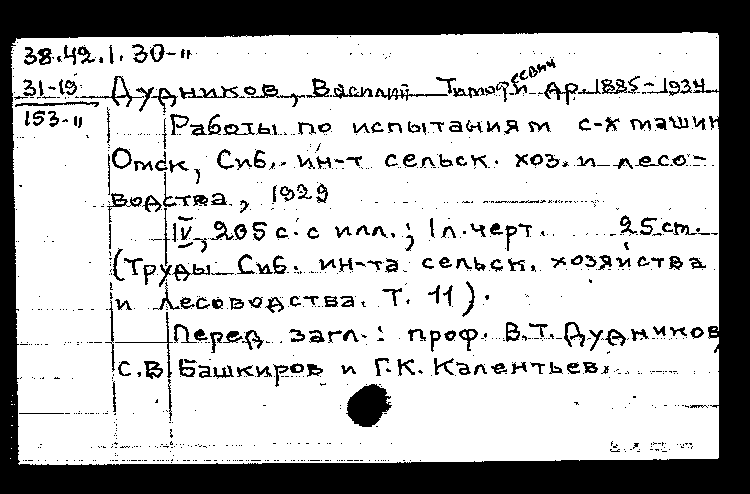 38.42.1.30-11
31-19
153-11
Дудников, Василий Тимофеевич др. 1885-1934
Работы по испытаниям с-х машин
Омск, Сиб. ин-т сельск. хоз. и лесо-
водства, 1929
IV, 205 с. с илл.; 1 л. черт. 25 ст.
(Труды Сиб. ин-та сельск. хозяйства
и лесоводства. Т. 11).
Перед загл.: проф. В.Т. Дудников,
С.В. Башкиров и Г.К. Калентьев.